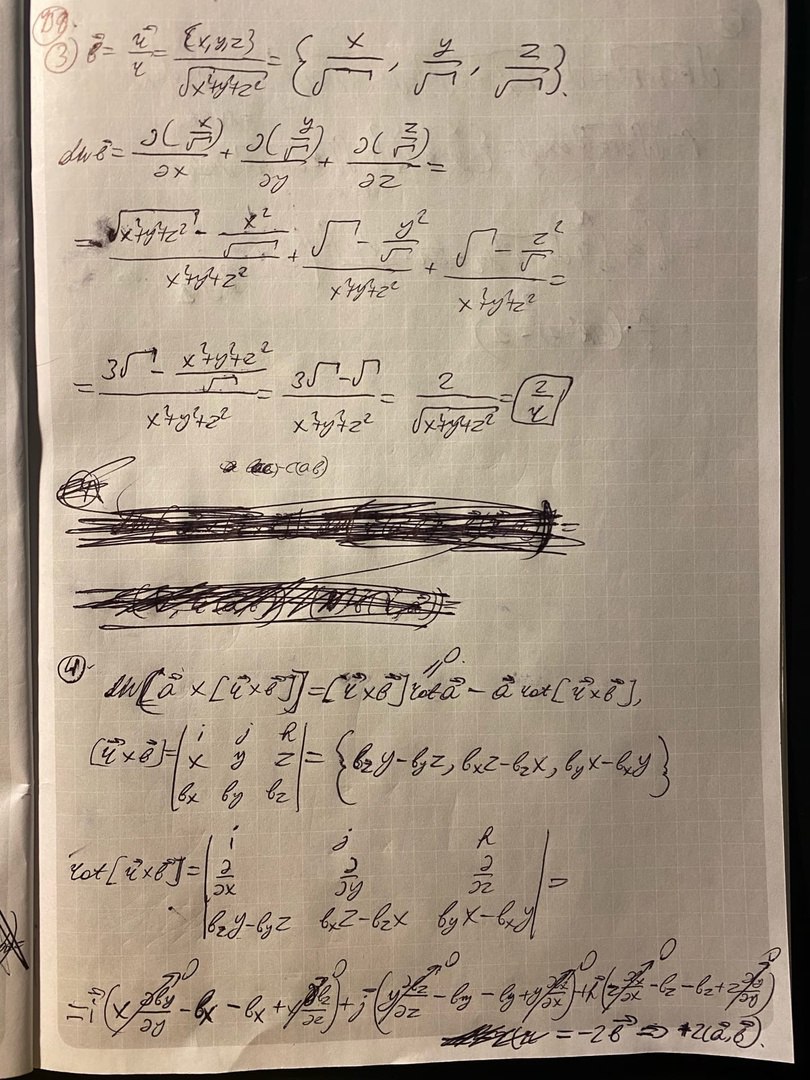 3) b⃗ = r⃗/r = {x,y,z}/√(x²+y²+z²) = {x/√‾, y/√‾, z/√‾}.
div b⃗ = ∂(x/√‾)/∂x + ∂(y/√‾)/∂y + ∂(z/√‾)/∂z =
= (√(x²+y²+z²) - x²/√‾)/(x²+y²+z²) + (√‾ - y²/√‾)/(x²+y²+z²) + (√‾ - z²/√‾)/(x²+y²+z²) =
= (3√‾ - (x²+y²+z²)/√‾)/(x²+y²+z²) = (3√‾ - √‾)/(x²+y²+z²) = 2/√(x²+y²+z²) = 2/r
-c(ab)
4) div[a⃗ × [r⃗ × b⃗]] = [r⃗ × b⃗] rot a⃗ - a⃗ rot [r⃗ × b⃗],
= 0
[r⃗ × b⃗] = | i j k
x y z
bx by bz | = {bz y - by z, bx z - bz x, by x - bx y}
rot [r⃗ × b⃗] = | i j k
∂/∂x ∂/∂y ∂/∂z
bz y - by z bx z - bz x by x - bx y | =
= i⃗ (x ∂by/∂y - bx - bx + x ∂bz/∂z) + j⃗ (y ∂bz/∂z - by - by + y ∂bx/∂x) + k⃗ (z ∂bx/∂x - bz - bz + z ∂by/∂y)
0 0 0 0 0 0
= -2b⃗ ⇒ +2(a⃗, b⃗).